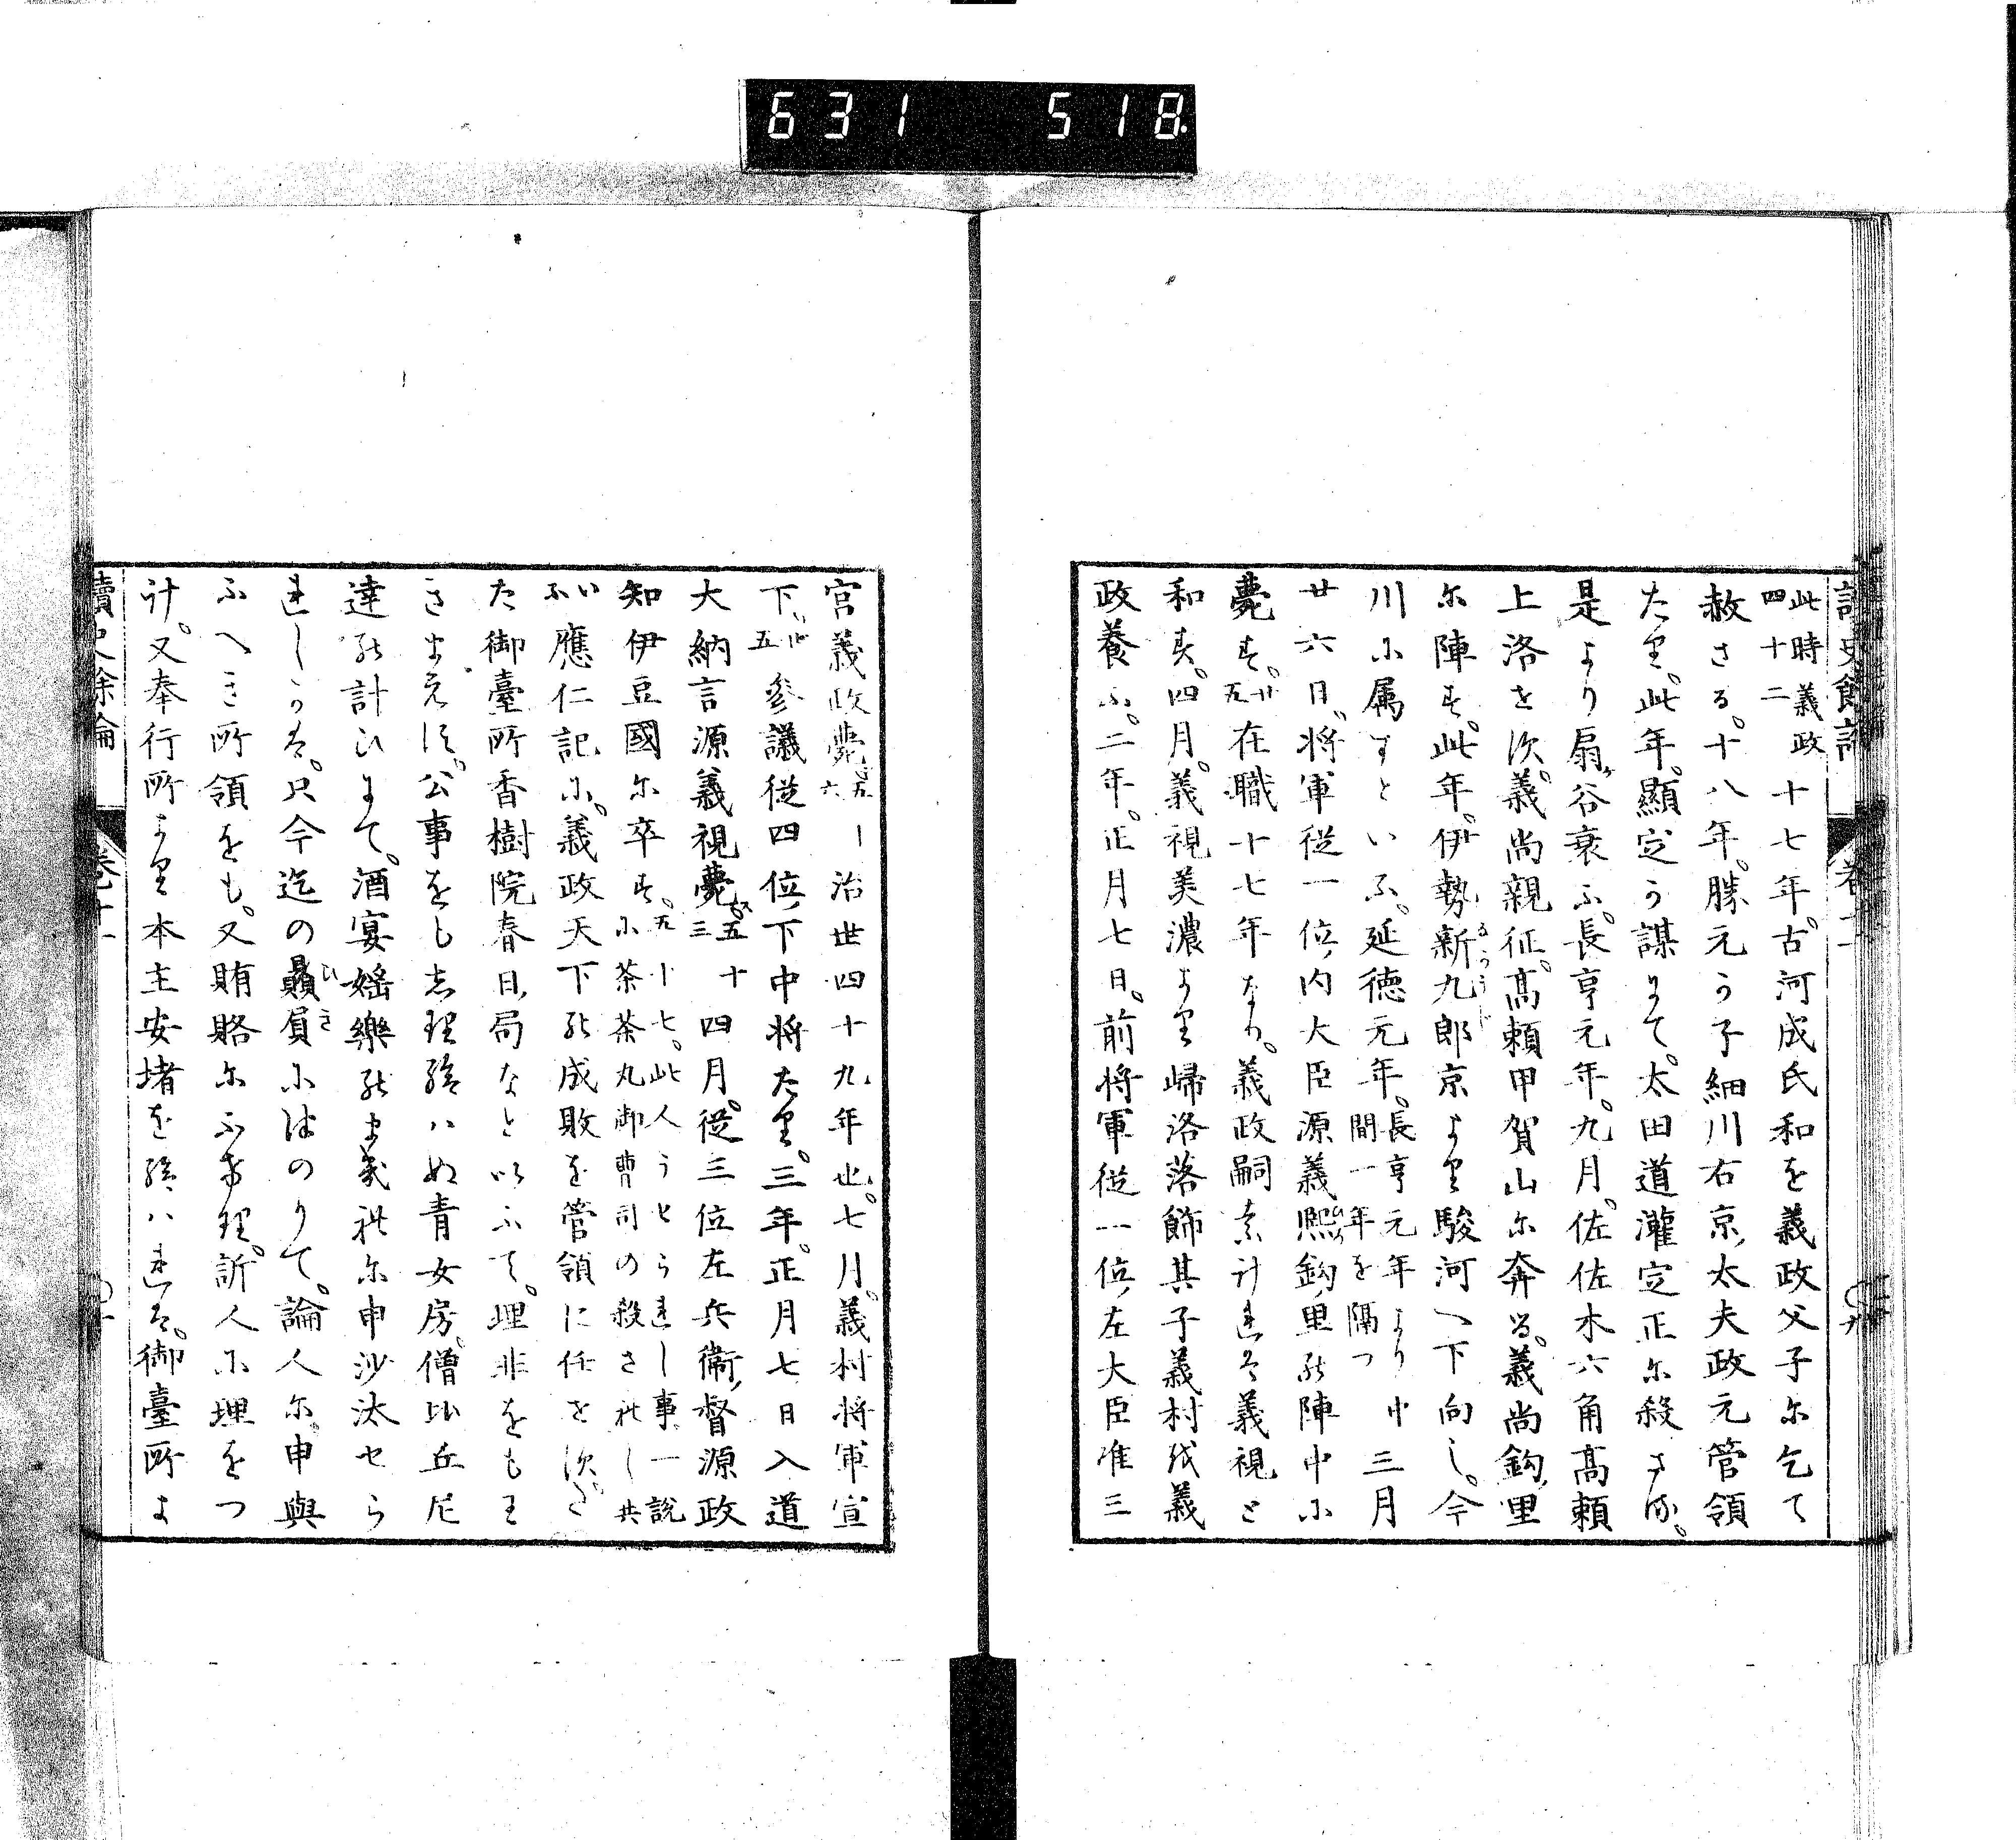 631 518
讀史餘論 卷十一 ○九
此時義政四十二 十七年。古河成氏和を義政父子尓乞て
赦さる。十八年。勝元う子細川右京太夫政元管領
たり。此年。顯定う謀にて。太田道灌定正尓殺さる。
是より扇谷衰ふ。長亨元年。九月。佐佐木六角髙頼
上洛せ須。義尚親征。髙頼甲賀山尓奔る。義尚鈎里
尓陣す。此年。伊勢新九郎京より駿河へ下向し。今
川ふ属すといふ。延徳元年。長亨元年より中間一年を隔つ 三月
廿六日。将軍従一位内大臣源義熈鈎里能陣中ふ
薨す。廿五 在職十七年なり。義政嗣奈计連は義視と
和す。四月。義視美濃より歸洛落飾其子義村越義
政養ふ。二年。正月七日。前将軍従一位左大臣准三
宮義政薨五十六 治世四十九年也。七月。義村将軍宣
下。廿五 参議従四位下中将たり。三年。正月七日入道
大納言源義視薨。五十三 四月。従三位左兵衞督源政
知伊豆國尓卒す。五十七。此人うせら連し事一説ふ茶茶丸御曹司の殺され し共
いふ 應仁記ふ。義政天下能成敗を管領に任せ須。た〻
た御臺所香樹院春日局なといふて。理非をもわ
きまへ須。公事をもしり給ハぬ青女房。僧比丘尼
達能計ひにて。酒宴媱樂能まぎれ尓申沙汰せら
連しうは。只今迄の贔屓ふほのりて。論人尓申與
ふへき所領をも。又賄賂尓ふ希り。訴人ふ理をつ
計。又奉行所より本主安堵を給ハ連は。御臺所よ
讀史餘論 卷十一 ○十